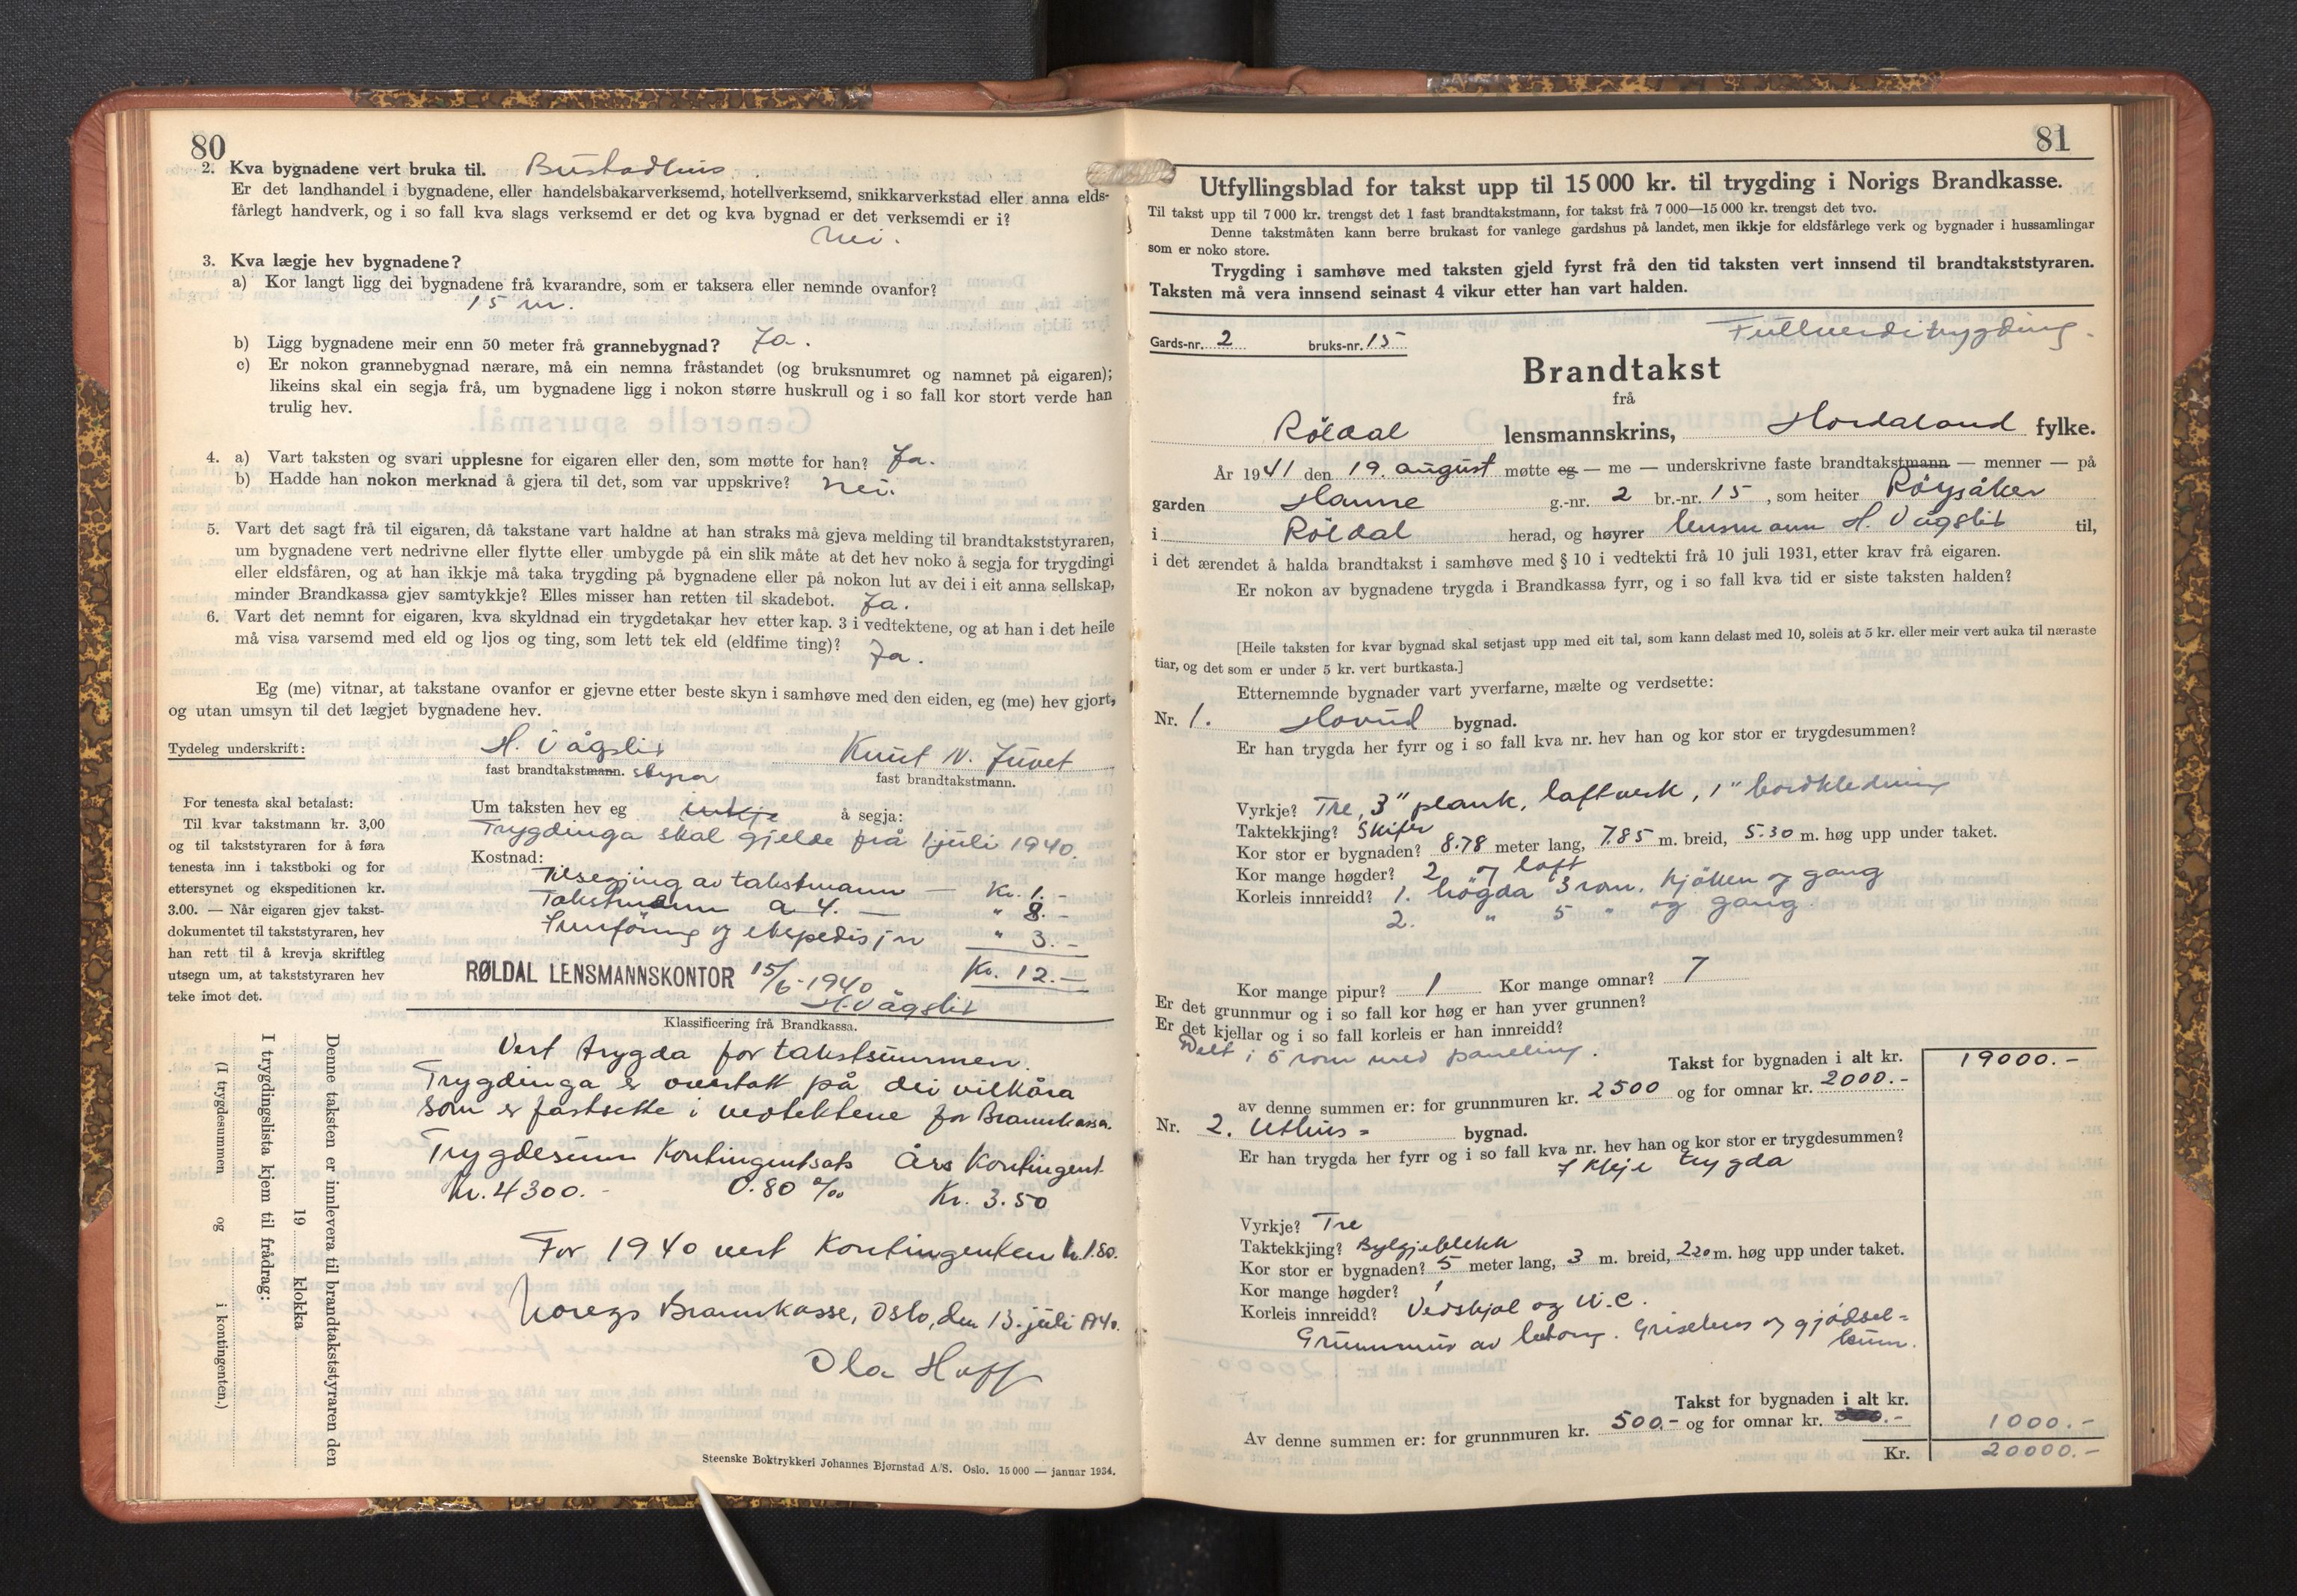 80
2. Kva bygnadene vert bruka til. Bustadhus
Er det landhandel i bygnadene, eller handelsbakarverksemd, hotellverksemd, snikkarverkstad eller anna elds-
fårlegt handverk, og i so fall kva slags verksemd er det og kva bygnad er det verksemdi er i?
Nei.
3. Kva lægje hev bygnadene?
a) Kor langt ligg dei bygnadene frå kvarandre, som er taksera eller nemnde ovanfor?
15 m.
b) Ligg bygnadene meir enn 50 meter frå grannebygnad? Ja.
c) Er nokon grannebygnad nærare, må ein nemna fråstandet (og bruksnumret og namnet på eigaren);
likeins skal ein segja frå, um bygnadene ligg i nokon større huskrull og i so fall kor stort verde han
trulig hev.
4. a) Vart taksten og svari upplesne for eigaren eller den, som møtte for han? Ja.
b) Hadde han nokon merknad å gjera til det, som var uppskrive? Nei.
5. Vart det sagt frå til eigaren, då takstane vart haldne at han straks må gjeva melding til brandtakststyraren,
um bygnadene vert nedrivne eller flytte eller umbygde på ein slik måte at det hev noko å segja for trygdingi
eller eldsfåren, og at han ikkje må taka trygding på bygnadene eller på nokon lut av dei i eit anna sellskap,
minder Brandkassa gjev samtykkje? Elles misser han retten til skadebot. Ja.
6. Vart det nemnt for eigaren, kva skyldnad ein trygdetakar hev etter kap. 3 i vedtektene, og at han i det heile
må visa varsemd med eld og ljos og ting, som lett tek eld (eldfime ting)? Ja.
Eg (me) vitnar, at takstane ovanfor er gjevne etter beste skyn i samhøve med den eiden, eg (me) hev gjort,
og utan umsyn til det lægjet bygnadene hev.
Tydeleg underskrift: H. Vågslid Knut N. Juvet
fast brandtakstmann. styra fast brandtakstmann.
For tenesta skal betalast:
Til kvar takstmann kr. 3,00
og til takststyraren for å føra
tenesta inn i takstboki og for
ettersynet og ekspeditionen kr.
3.00. — Når eigaren gjev takst-
dokumentet til takststyraren, hev
han rett til å krevja skriftleg
utsegn um, at takststyraren hev
teke imot det.
Um taksten hev eg inkje å segja:
Trygdinga skal gjelde frå 1 juli 1940.
Kostnad:
Tilsegjing av takstmann — Kr. 1.-
Takstmenn a 4. — " 8.-
Innföring og ekspedisjon " 3.-
RØLDAL LENSMANNSKONTOR 15/6-1940 Kr. 12.-
H. Vågslid
Klassificering frå Brandkassa.
Vert trygda for takstsummen.
Trygdinga er overtatt på dei vilkåra
som er fastsette i vedtektene for Brannkassa.
Trygdesum Kontingentsats Års Kontingent
Kr. 4300.- 0.80 ‰ Kr. 3.50
For 1940 vert Kontingenten kr. 1.80.
Noregs Brannkasse, Oslo, den 13. juli 1940.
Ola Hoff
Denne taksten er innlevera til brandtakststyraren den
19 klokka
I trygdingslista kjem til frådrag:
(I trygdesummen og i kontingenten.)
Steenske Boktrykkeri Johannes Bjørnstad A/S. Oslo. 15 000 — januar 1934.
81
Utfyllingsblad for takst upp til 15 000 kr. til trygding i Norigs Brandkasse.
Til takst upp til 7 000 kr. trengst det 1 fast brandtakstmann, for takst frå 7 000—15 000 kr. trengst det tvo.
Denne takstmåten kann berre brukast for vanlege gardshus på landet, men ikkje for eldsfårlege verk og bygnader i hussamlingar
som er noko store.
Trygding i samhøve med taksten gjeld fyrst frå den tid taksten vert innsend til brandtakststyraren.
Taksten må vera innsend seinast 4 vikur etter han vart halden.
Fullverditrygding.
Gards-nr. 2 bruks-nr. 15
Brandtakst
frå
Röldal lensmannskrins, Hordaland fylke.
År 1941 den 19. august møtte eg — me — underskrivne faste brandtakstmann — menner — på
garden Hanne g.-nr. 2 br.-nr. 15, som heiter Röysåker
i Röldal herad, og høyrer lensmann H. Vågslid til,
i det ærendet å halda brandtakst i samhøve med § 10 i vedtekti frå 10 juli 1931, etter krav frå eigaren.
Er nokon av bygnadene trygda i Brandkassa fyrr, og i so fall kva tid er siste taksten halden?
[Heile taksten for kvar bygnad skal setjast upp med eit tal, som kann delast med 10, soleis at 5 kr. eller meir vert auka til næraste
tiar, og det som er under 5 kr. vert burtkasta.]
Etternemnde bygnader vart yverfarne, mælte og verdsette:
Nr. 1. Hovud bygnad.
Er han trygda her fyrr og i so fall kva nr. hev han og kor stor er trygdesummen?
Vyrkje? Tre, 3" plank, laftverk, 1" bordkledning
Taktekkjing? Skifer
Kor stor er bygnaden? 8.78 meter lang, 7.85 m. breid, 5.30 m. høg upp under taket.
Kor mange høgder? 2 og loft
Korleis innreidd? 1. högda 3 rom. kjökken og gang
2. " 5 " og gang.
Kor mange pipur? 1 Kor mange omnar? 7
Er det grunnmur og i so fall kor høg er han yver grunnen?
Er det kjellar og i so fall korleis er han innreidd?
Delt i 5 rom med paneling.
Takst for bygnaden i alt kr. 19000.-
av denne summen er: for grunnmuren kr. 2500 og for omnar kr. 2000.-
Nr. 2. Uthus- bygnad.
Er han trygda her fyrr og i so fall kva nr. hev han og kor stor er trygdesummen?
Ikkje trygda
Vyrkje? Tre
Taktekkjing? Bylgjeblekk
Kor stor er bygnaden? 5 meter lang, 3 m. breid, 220 m. høg upp under taket.
Kor mange høgder? 1
Korleis innreidd? Vedskjol og W.C.
Grunnmur av betong. Grisehus og gjödsel-
kum.
Takst for bygnaden i alt kr.
Av denne summen er: for grunnmuren kr. 500.- og for omnar kr. .- 1000.-
Kr. 20000.-